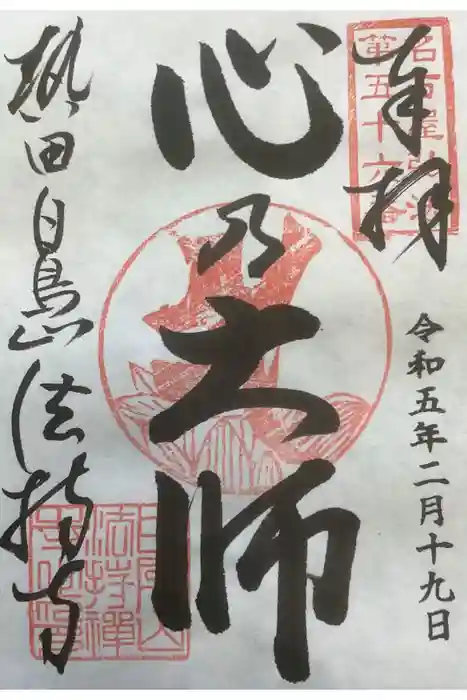 奉拝
名古屋弘法
第五十六番
令和五年二月十九日
心乃大師
熱田白鳥山法持寺
白鳥山
法持禅